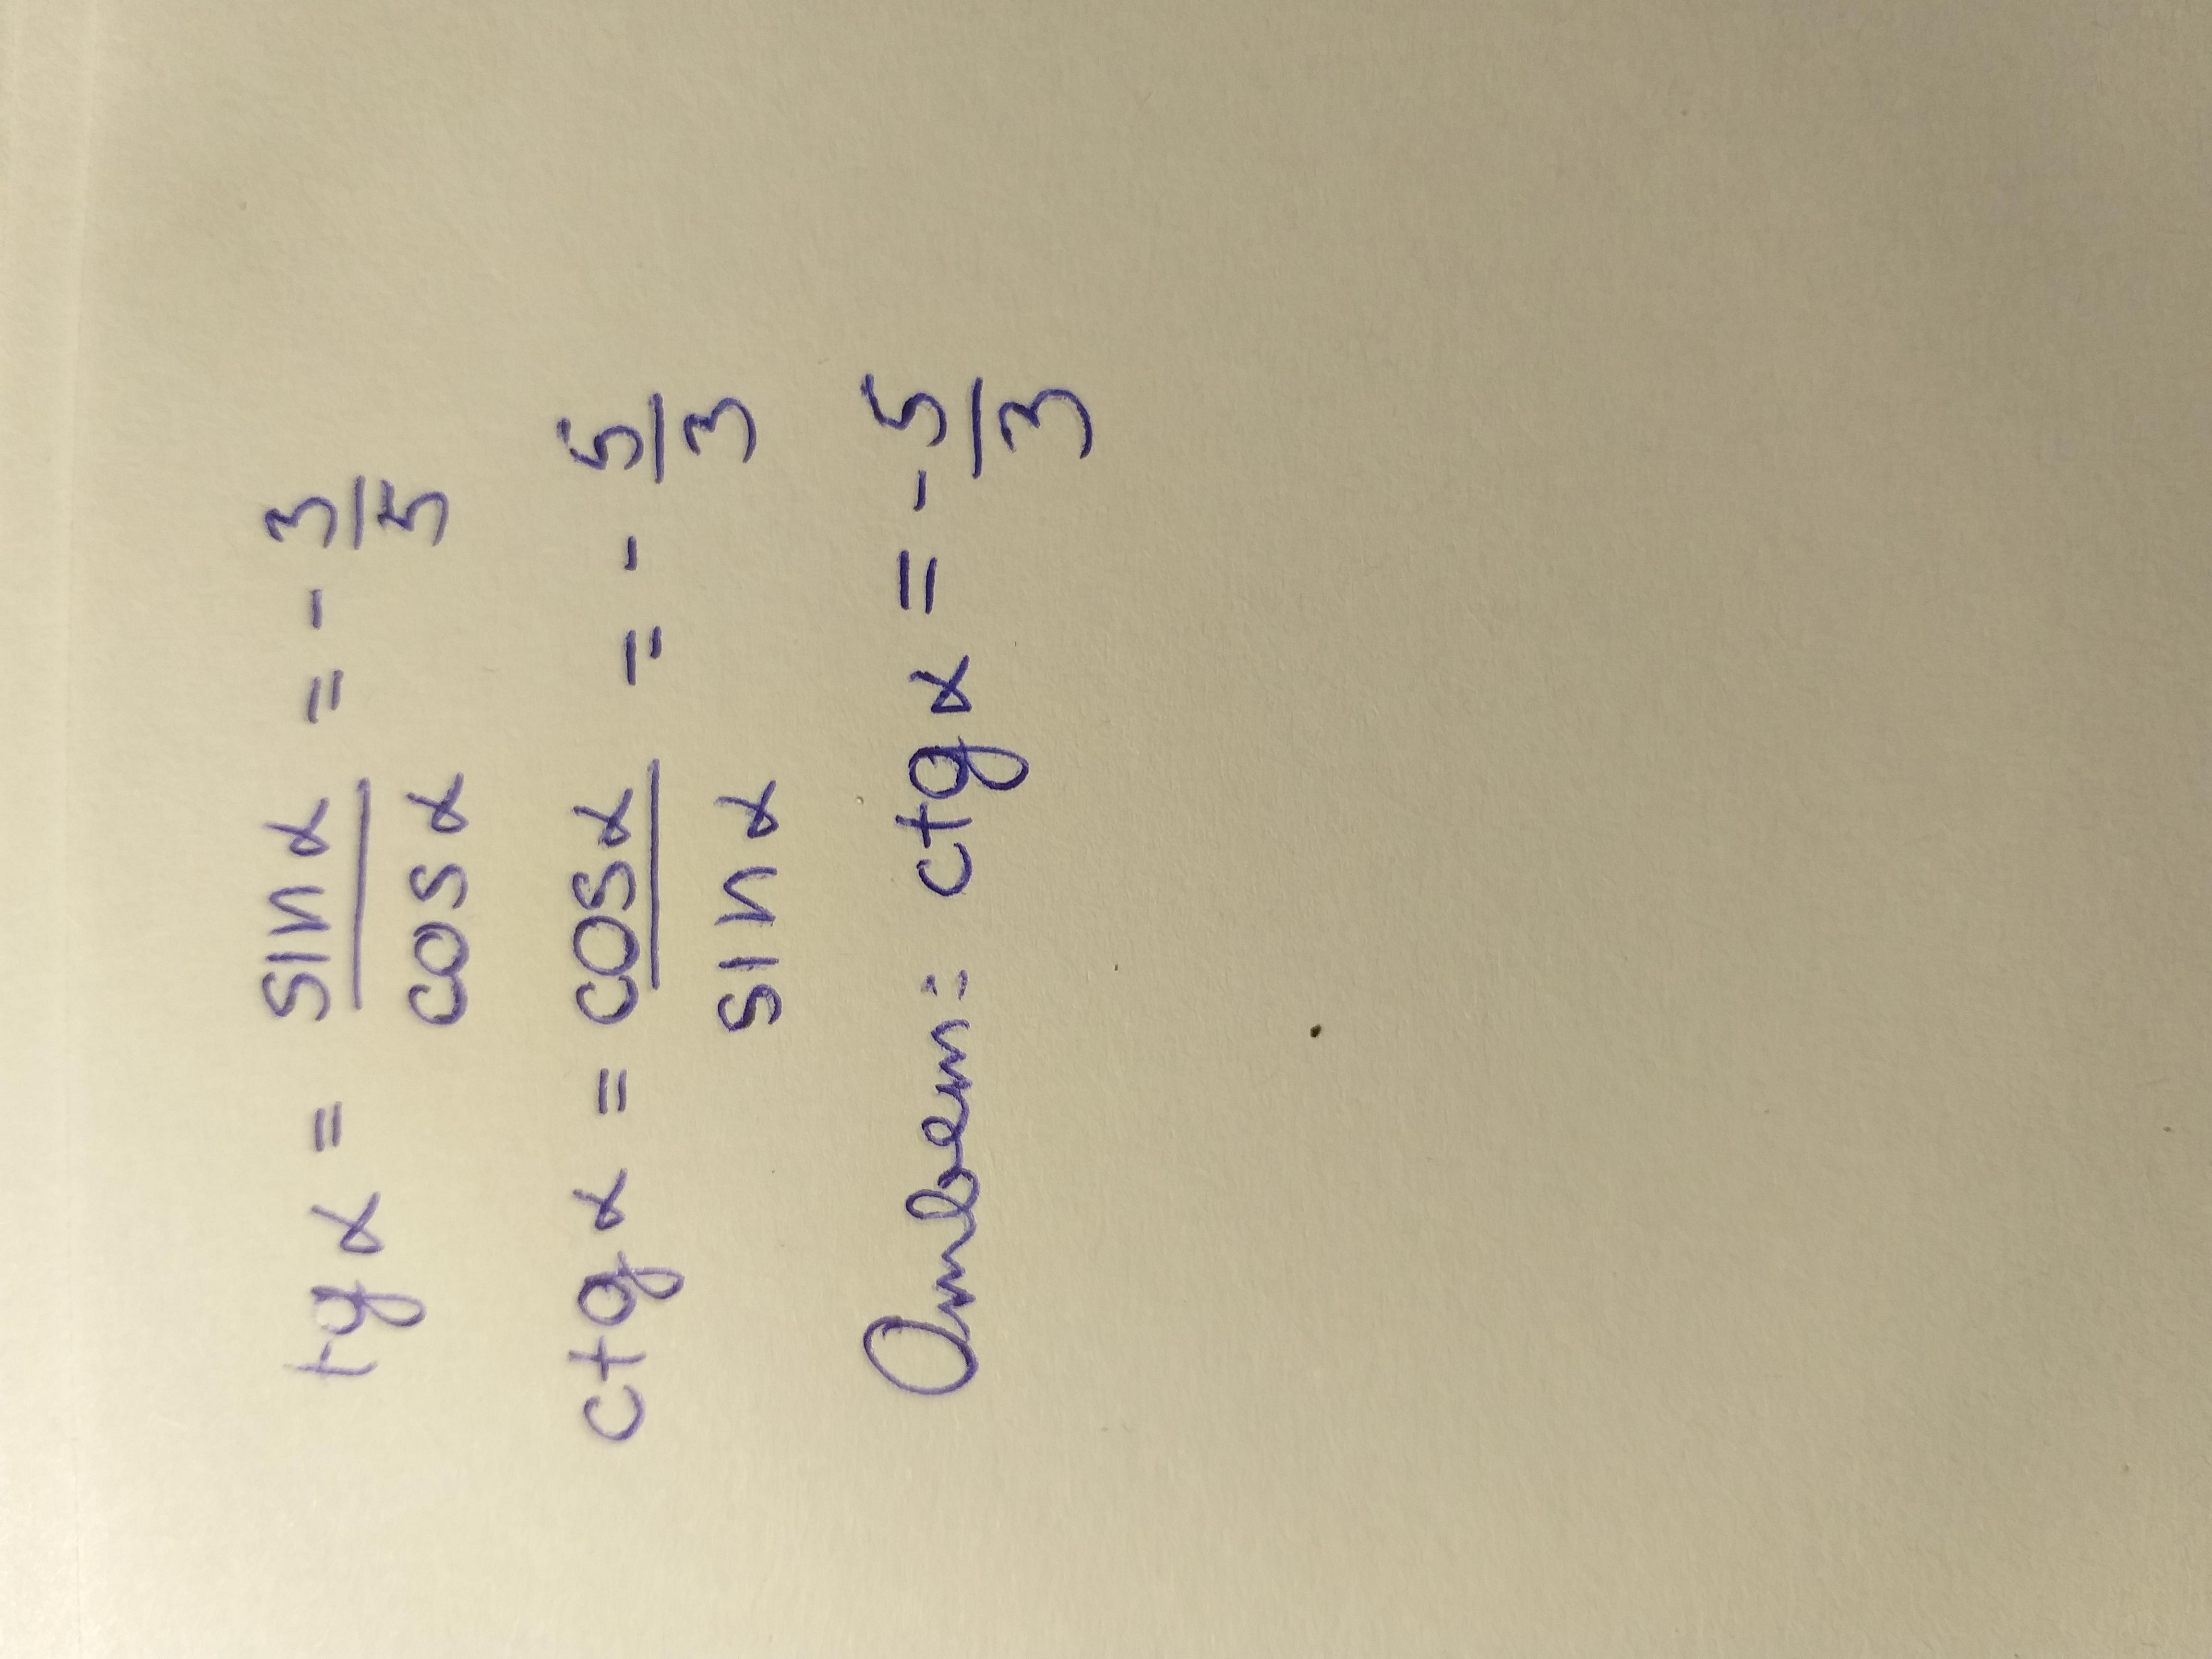 tg α = sin α / cos α = - 3/5
ctg α = cos α / sin α = - 5/3
Ответ: ctg α = - 5/3